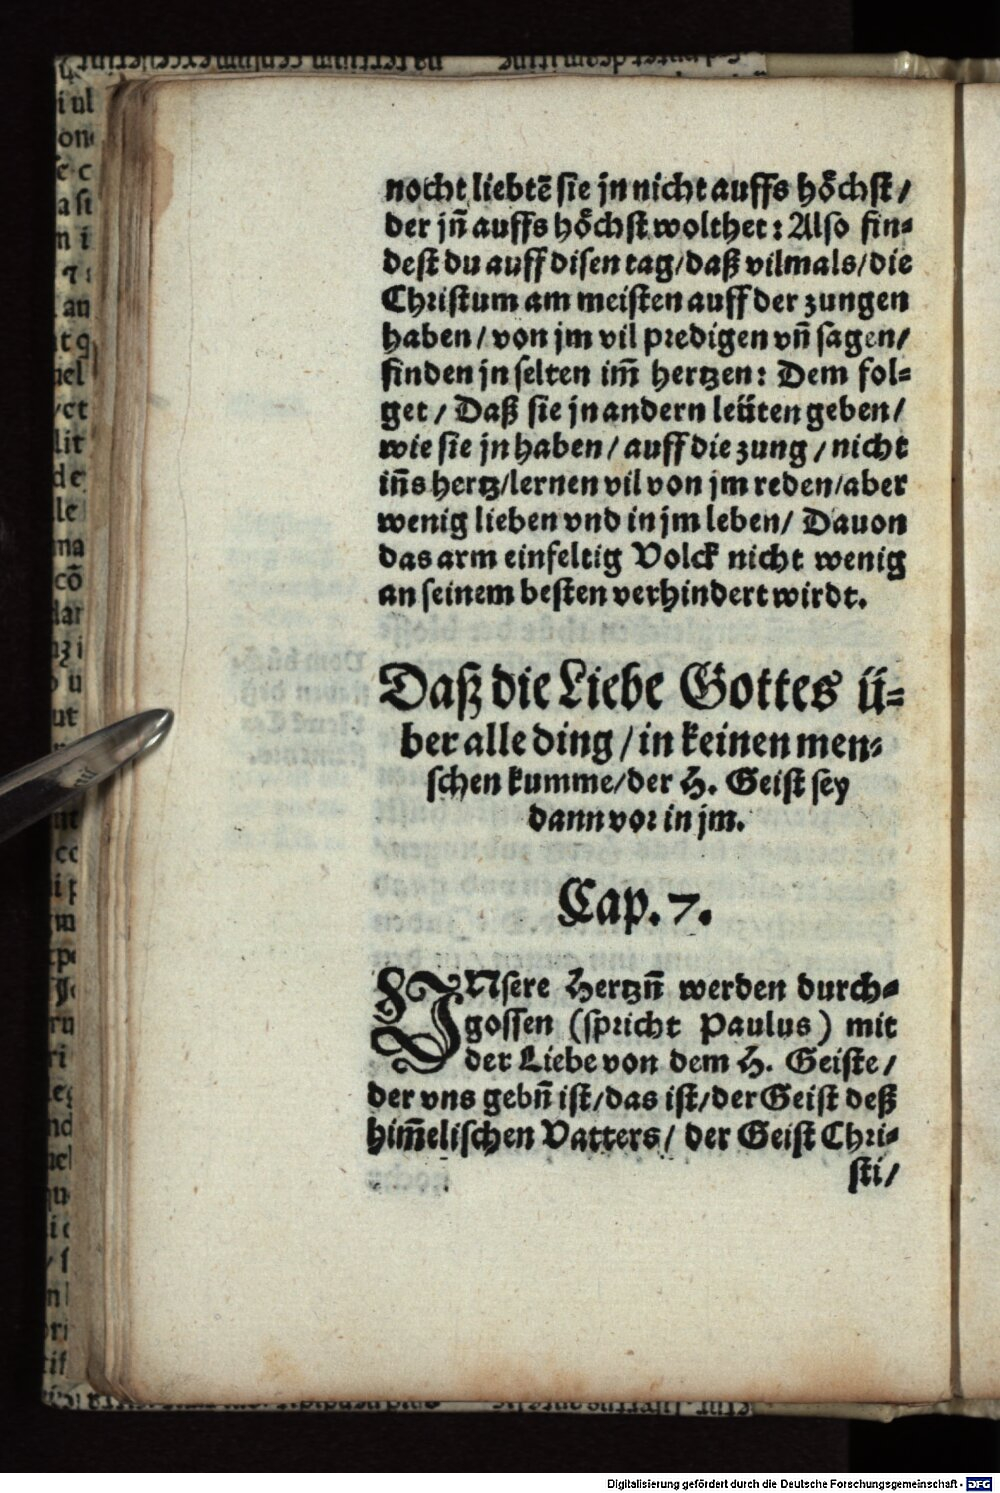 nocht liebtẽ sie jn nicht auffs hoͤchst /
der jn̄ auffs hoͤchst wolthet : Also fin⸗
dest du auff disen tag / daß vilmals / die
Christum am meisten auff der zungen
haben / von jm vil predigen vn̄ sagen /
finden jn selten im̄ hertzen : Dem fol⸗
get / Daß sie jn andern leüten geben /
wie sie jn haben / auff die zung / nicht
in̄s hertz / lernen vil von jm reden / aber
wenig lieben vnd in jm leben / Dauon
das arm einfeltig Volck nicht wenig
an seinem besten verhindert wirdt.
Daß die Liebe Gottes ü⸗
ber alle ding / in keinen men⸗
schen kumme / der H. Geist sey
dann vor in jm.
Cap. 7.
VNsere Hertzn̄ werden durch⸗
gossen (spricht Paulus) mit
der Liebe von dem H. Geiste /
der vns gebn̄ ist / das ist / der Geist deß
him̄elischen Vatters / der Geist Chri⸗
sti /
Digitalisierung gefördert durch die Deutsche Forschungsgemeinschaft - DFG